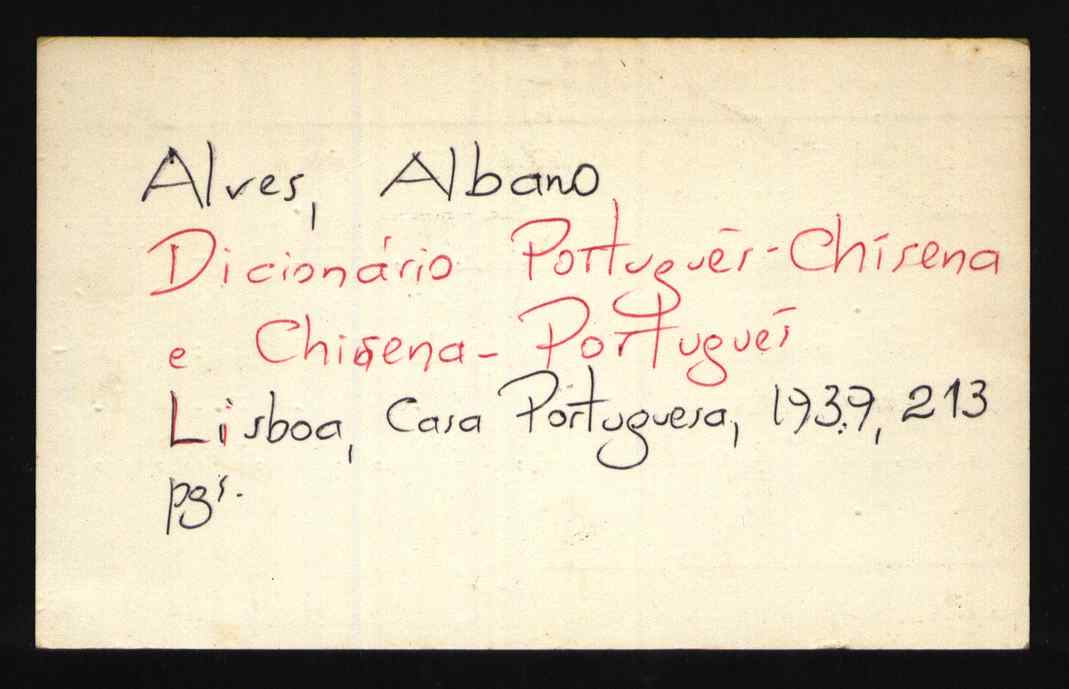 Alves, Albano
Dicionário Português-Chisena
e Chisena-Português
Lisboa, Casa Portuguesa, 1939, 213
pgs.